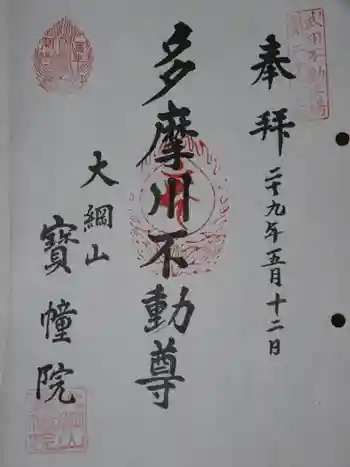 奉拝
二十九年五月十二日
多摩川不動尊
大綱山
寶幢院